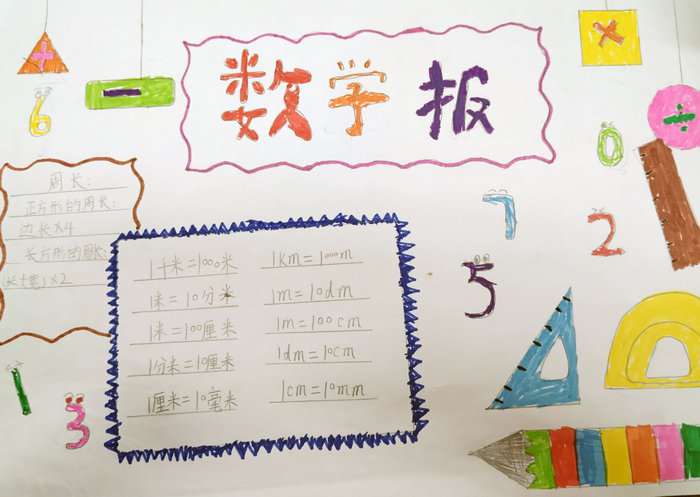 数学报
周长:
正方形的周长:
边长×4
长方形的周长:
(长+宽)×2
1千米=1000米
1米=10分米
1米=100厘米
1分米=10厘米
1厘米=10毫米
1km=1000m
1m=10dm
1m=100cm
1dm=10cm
1cm=10mm
+
-
×
÷
6
0
7
2
5
1
3